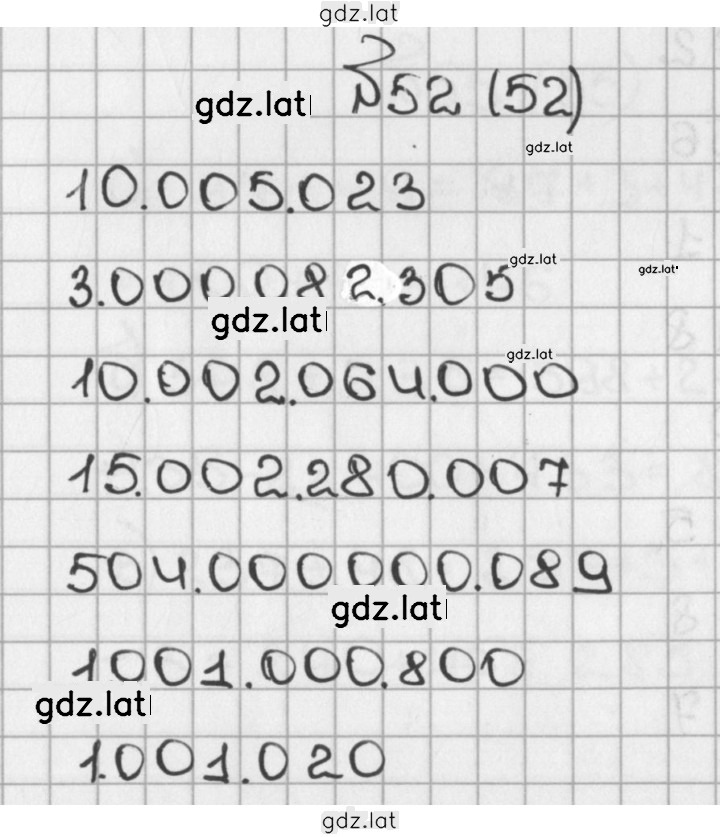 gdz.lat
№52 (52)
gdz.lat
gdz.lat
10.005.023
gdz.lat
gdz.lat
3.000.082.305
gdz.lat
gdz.lat
10.002.064.000
15.002.280.007
504.000.000.089
gdz.lat
1001.000.800
gdz.lat
1.001.020
gdz.lat